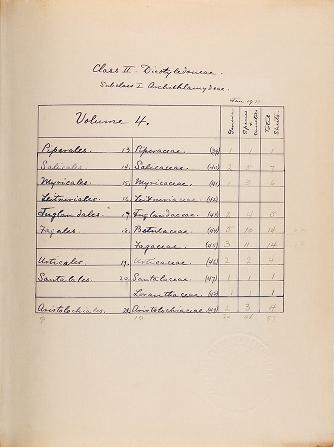 Class II. Dicotyledoneae.
Subclass I Archichlamydeae.
Volume 4.
Genera
Species &
Total Sheets
Piperales. 13. Piperaceae (39) 1 1
Salicales. 14. Salicaceae (40) 2 7
Myricales. 15. Myricaceae (41) 6
Leitneriales. 16. Leitneriaceae (42)
Juglandales. 17. Juglandaceae (43) 2 4 8
Fagales. 18. Betulaceae (44) 10 14
Fagaceae (45) 3 11 14
Urticales. 19. Urticaceae (46) 2 2 4
Santalales. 20. Santalaceae (47) 1 1 1
Loranthaceae (48) 1 1 1
Aristolochiales. 21. Aristolochiaceae (49) 2 3 4